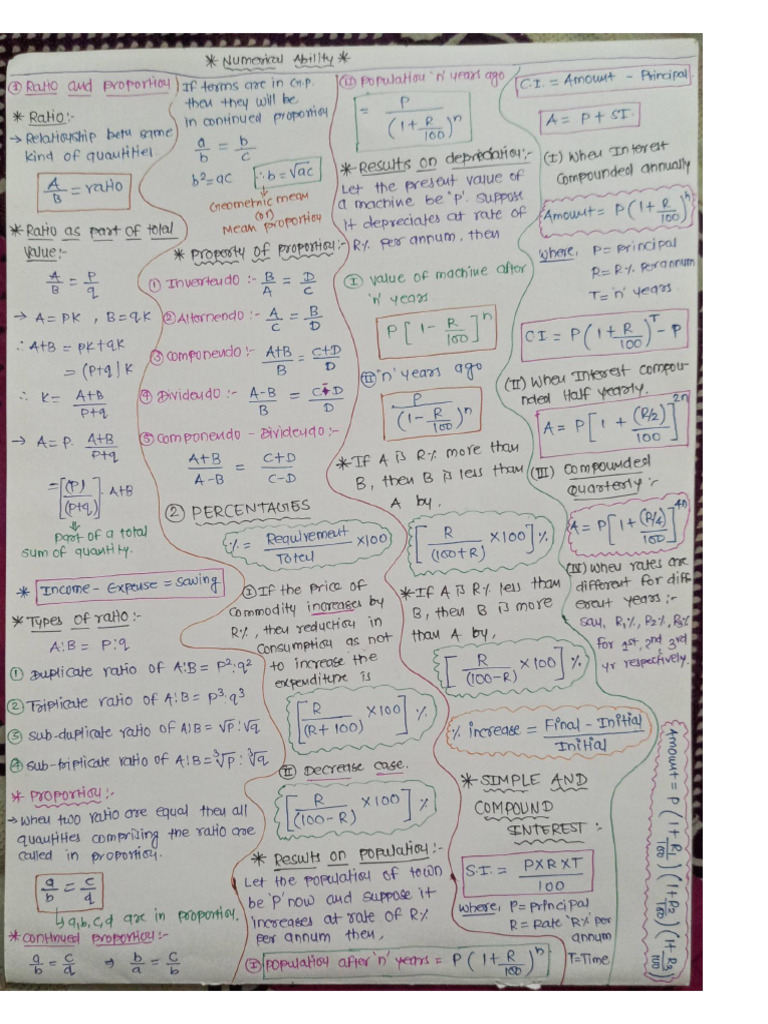 * Numerical Ability *
① Ratio and proportion
* Ratio:-
→ Relationship betn same
kind of quantities.
A/B = ratio
* Ratio as part of total
value:-
A/B = P/q
→ A = PK , B = qK
∴ A+B = PK+qK
= (P+q) K
∴ K = A+B/P+q
→ A = P. A+B/P+q
= [(P)/(P+q)] . A+B
Part of a total
sum of quantity.
* Income - Expense = saving
* Types of ratio:-
A:B = P:q
① Duplicate ratio of A:B = P²:q²
② Triplicate ratio of A:B = P³:q³
③ sub-duplicate ratio of A:B = √P : √q
④ sub-triplicate ratio of A:B = ∛P : ∛q
* Proportion:-
→ when two ratio are equal then all
quantities comprising the ratio are
called in proportion.
a/b = c/d
↳ a,b,c,d are in proportion.
* continued proportion:-
a/b = c/d ⇒ b/a = c/b
If terms are in G.P.
then they will be
in continued proportion
a/b = b/c
b² = ac ∴ b = √ac
Geometric mean
or
Mean proportion
* Property of proportion:-
① Invertendo :- B/A = D/C
② Alternendo :- A/C = B/D
③ componendo :- A+B/B = C+D/D
④ Dividendo :- A-B/B = C-D/D
⑤ Componendo - Dividendo :-
A+B/A-B = C+D/C-D
② PERCENTAGES
% = Requirement/Total ×100
① If the price of
commodity increases by
R%, then reduction in
consumption as not
to increase the
expenditure is
[R/(R+100) ×100] %
Ⅱ Decrease case.
[R/(100-R) ×100] %
* Results on population:-
Let the population of town
be 'p' now and suppose it
increases at rate of R%
per annum then,
Ⅰ population after 'n' years = P(1+R/100)ⁿ
Ⅱ population 'n' years ago
= P/(1+R/100)ⁿ
* Results on depreciation:-
Let the present value of
a machine be 'p'. suppose
it depreciates at rate of
R% per annum. then
Ⅰ value of machine after
'n' years
P[1-R/100]ⁿ
Ⅱ 'n' years ago
P/(1-R/100)ⁿ
* If A is R% more than
B, then B is less than
A by.
[R/(100+R) ×100] %
* If A is R% less than
B, then B is more
than A by,
[R/(100-R) ×100] %
% increase = Final - Initial/Initial
* SIMPLE AND
COMPOUND
INTEREST :-
S.I. = P×R×T/100
where, P = Principal
R = Rate 'R%' per
annum
T = Time
C.I. = Amount - Principal
A = P + SI.
(I) When Interest
compounded annually
Amount = P(1+R/100)ⁿ
where, P = Principal
R = R% Per annum
T = 'n' years.
CI = P(1+R/100)ᵀ - P
(II) When Interest compou-
nded Half yearly.
A = P[1 + (R/2)/100]²ⁿ
(III) Compounded
Quarterly :-
A = P[1+(R/4)/100]⁴ⁿ
(IV) When rates are
different for diff
erent years :-
say, R₁%, R₂%, R₃%
for 1st, 2nd & 3rd
yr respectively.
Amount = P(1+R₁/100)(1+R₂/100)(1+R₃/100)